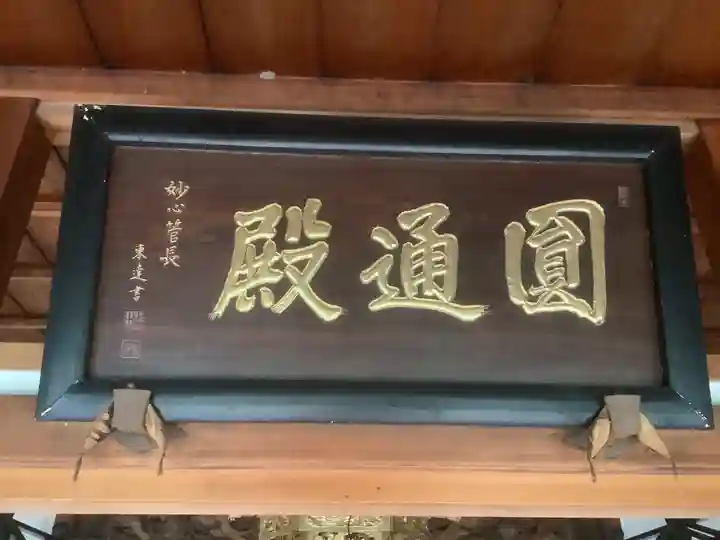 圓通殿
妙心管長
東達書